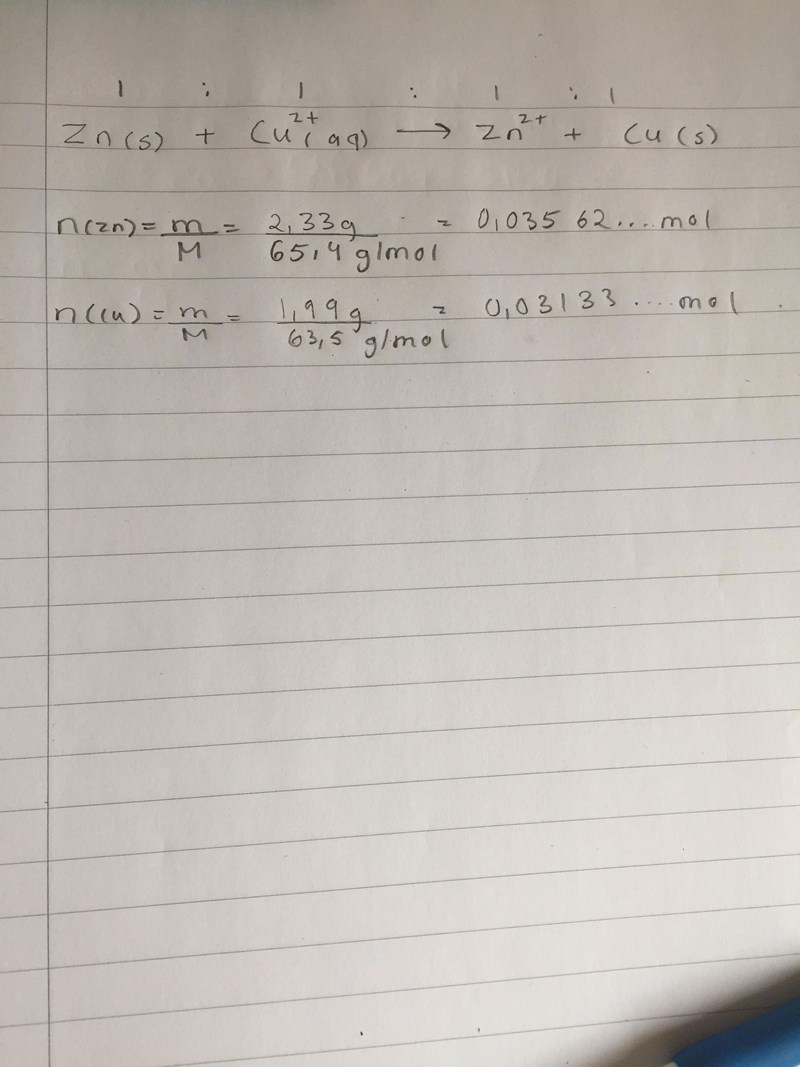 1 : 1 : 1 : 1
Zn(s) + Cu²⁺(aq) → Zn²⁺ + Cu(s)
n(zn) = m/M = 2,33g/65,4 g/mol = 0,03562... mol
n(Cu) = m/M = 1,99g/63,5 g/mol = 0,03133 ....mol